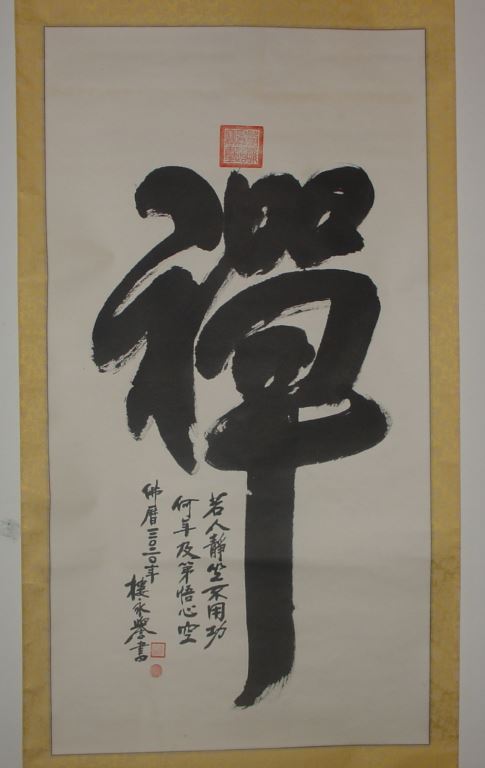 禪
若人靜坐不用功
何年及第悟心空
佛曆三〇二〇年
永譽書